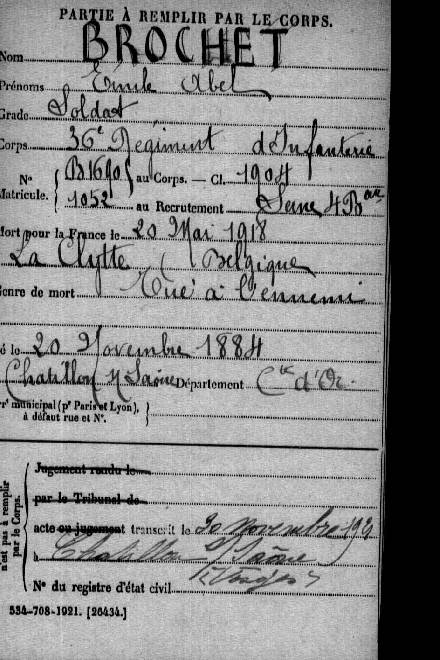 PARTIE À REMPLIR PAR LE CORPS.
Nom BROCHET
Prénoms Emile Abel
Grade Soldat
Corps 36e Régiment d'Infanterie
N° Matricule. { B1690 au Corps. — Cl. 1904
1052 au Recrutement Seine 4 Bau
Mort pour la France le 20 Mai 1918
La Clytte (Belgique
Genre de mort Tué à l'ennemi
é le 20 Novembre 1884
Chatillon s/ Saône Département Cte d'Or.
rrt municipal (pr Paris et Lyon), à défaut rue et N°. }
Jugement rendu le
par le Tribunal de
acte ou jugement transcrit le 30 novembre 192
à Chatillon s/ Saône
(Vosges)
N° du registre d'état civil
n'est pas à remplir par le Corps.
534-708-1921. [26434.]